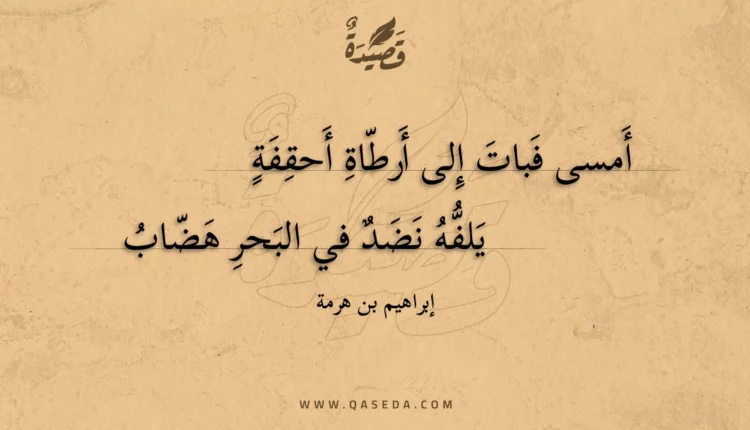 قَصِيدَةٌ
أَمسى فَباتَ إِلى أَرطّاةِ أَحقِفَةٍ
يَلفُّهُ نَضَدٌ في البَحرِ هَضّابُ
إبراهيم بن هرمة
WWW.QASEDA.COM